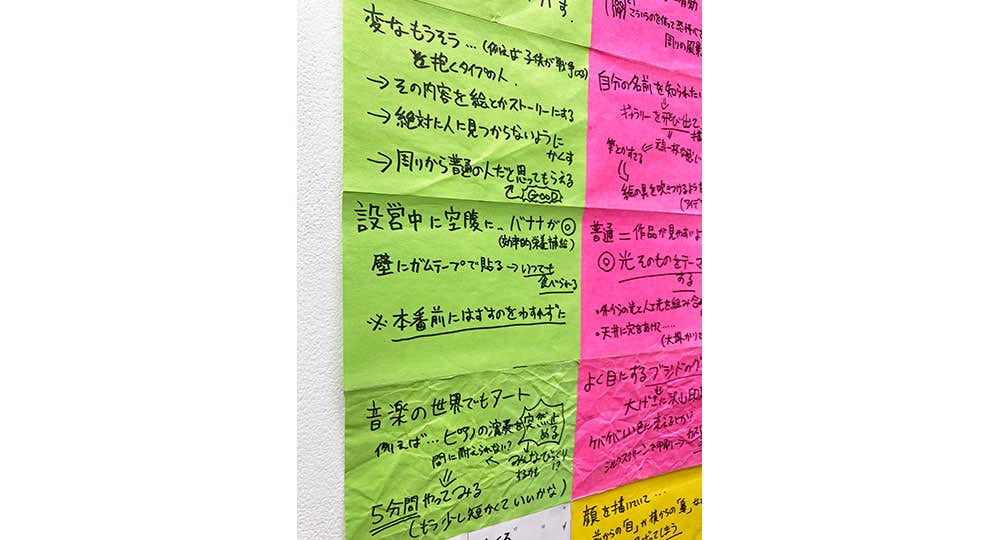 変なもうそう…(例えば子供が戦争
を抱くタイプの人
→その内容を絵とかストーリーにする
→絶対に人に見つからないように
かくす
→周りから普通の人だと思ってもらえる
GOOD
設営中に空腹に…バナナが◎
(効率的栄養補給)
壁にガムテープで貼る→いつでも
食べられる
※本番前にはずすのをわすれずに
音楽の世界でもアート
例えば…ピアノの演奏を突然止める
間に耐えられない?
みんなびっくり
するかも!?
5分間やってみる
(もう少し短かくていいかな)
周りの風景
自分の名前を知られたい
ギャラリーを飛び出て
筆とかすてる
絵の具を吹きつけるよう
普通=作品が見やすいよ
◎光そのものをテーマ
する
・外からの光と人工光を組み合
・天井に穴をあけて……
よく目にするブランドのグ
大げさに沢山印
ケバケバしい色に変えるとか?
シルクスクリーンで
顔を描いていて…
前からの「目」が横からの「鼻」